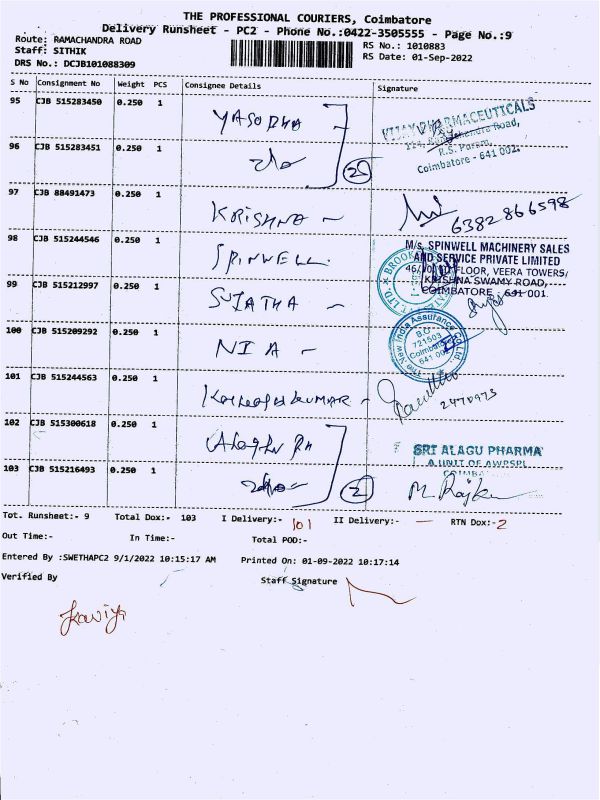 THE PROFESSIONAL COURIERS, Coimbatore
Delivery Runsheet - PC2 - Phone No.:0422-3505555 - Page No.:9
Route: RAMACHANDRA ROAD
RS No.: 1010883
Staff: SITHIK
RS Date: 01-Sep-2022
DRS No.: DCJB101088309
S No Consignment No Weight PCS Consignee Details Signature
95 CJB 515283450 0.250 1 YASODHA
VIJAY PHARMACEUTICALS
Road,
R.S. Puram,
Coimbatore - 641 002.
96 CJB 515283451 0.250 1
97 CJB 88491473 0.250 1 KRISHNA -
6382866598
98 CJB 515244546 0.250 1 SPINWELL
M/s. SPINWELL MACHINERY SALES
AND SERVICE PRIVATE LIMITED
FLOOR, VEERA TOWERS/
KRISHNA SWAMY ROAD,
COIMBATORE - 641 001.
99 CJB 515212997 0.250 1 SUJATHA -
100 CJB 515209292 0.250 1 NIA -
The New India Assurance Co. Ltd.
B.O.
721503
Coimbatore
641 002
101 CJB 515244563 0.250 1
2470973
102 CJB 515300618 0.250 1
SRI ALAGU PHARMA
A UNIT OF AWPSPL
103 CJB 515216493 0.250 1
2
M. Rajku
Tot. Runsheet:- 9 Total Dox:- 103 I Delivery:- 101 II Delivery:- — RTN Dox:- 2
Out Time:- In Time:- Total POD:-
Entered By :SWETHAPC2 9/1/2022 10:15:17 AM Printed On: 01-09-2022 10:17:14
Verified By Staff Signature
Kaviya